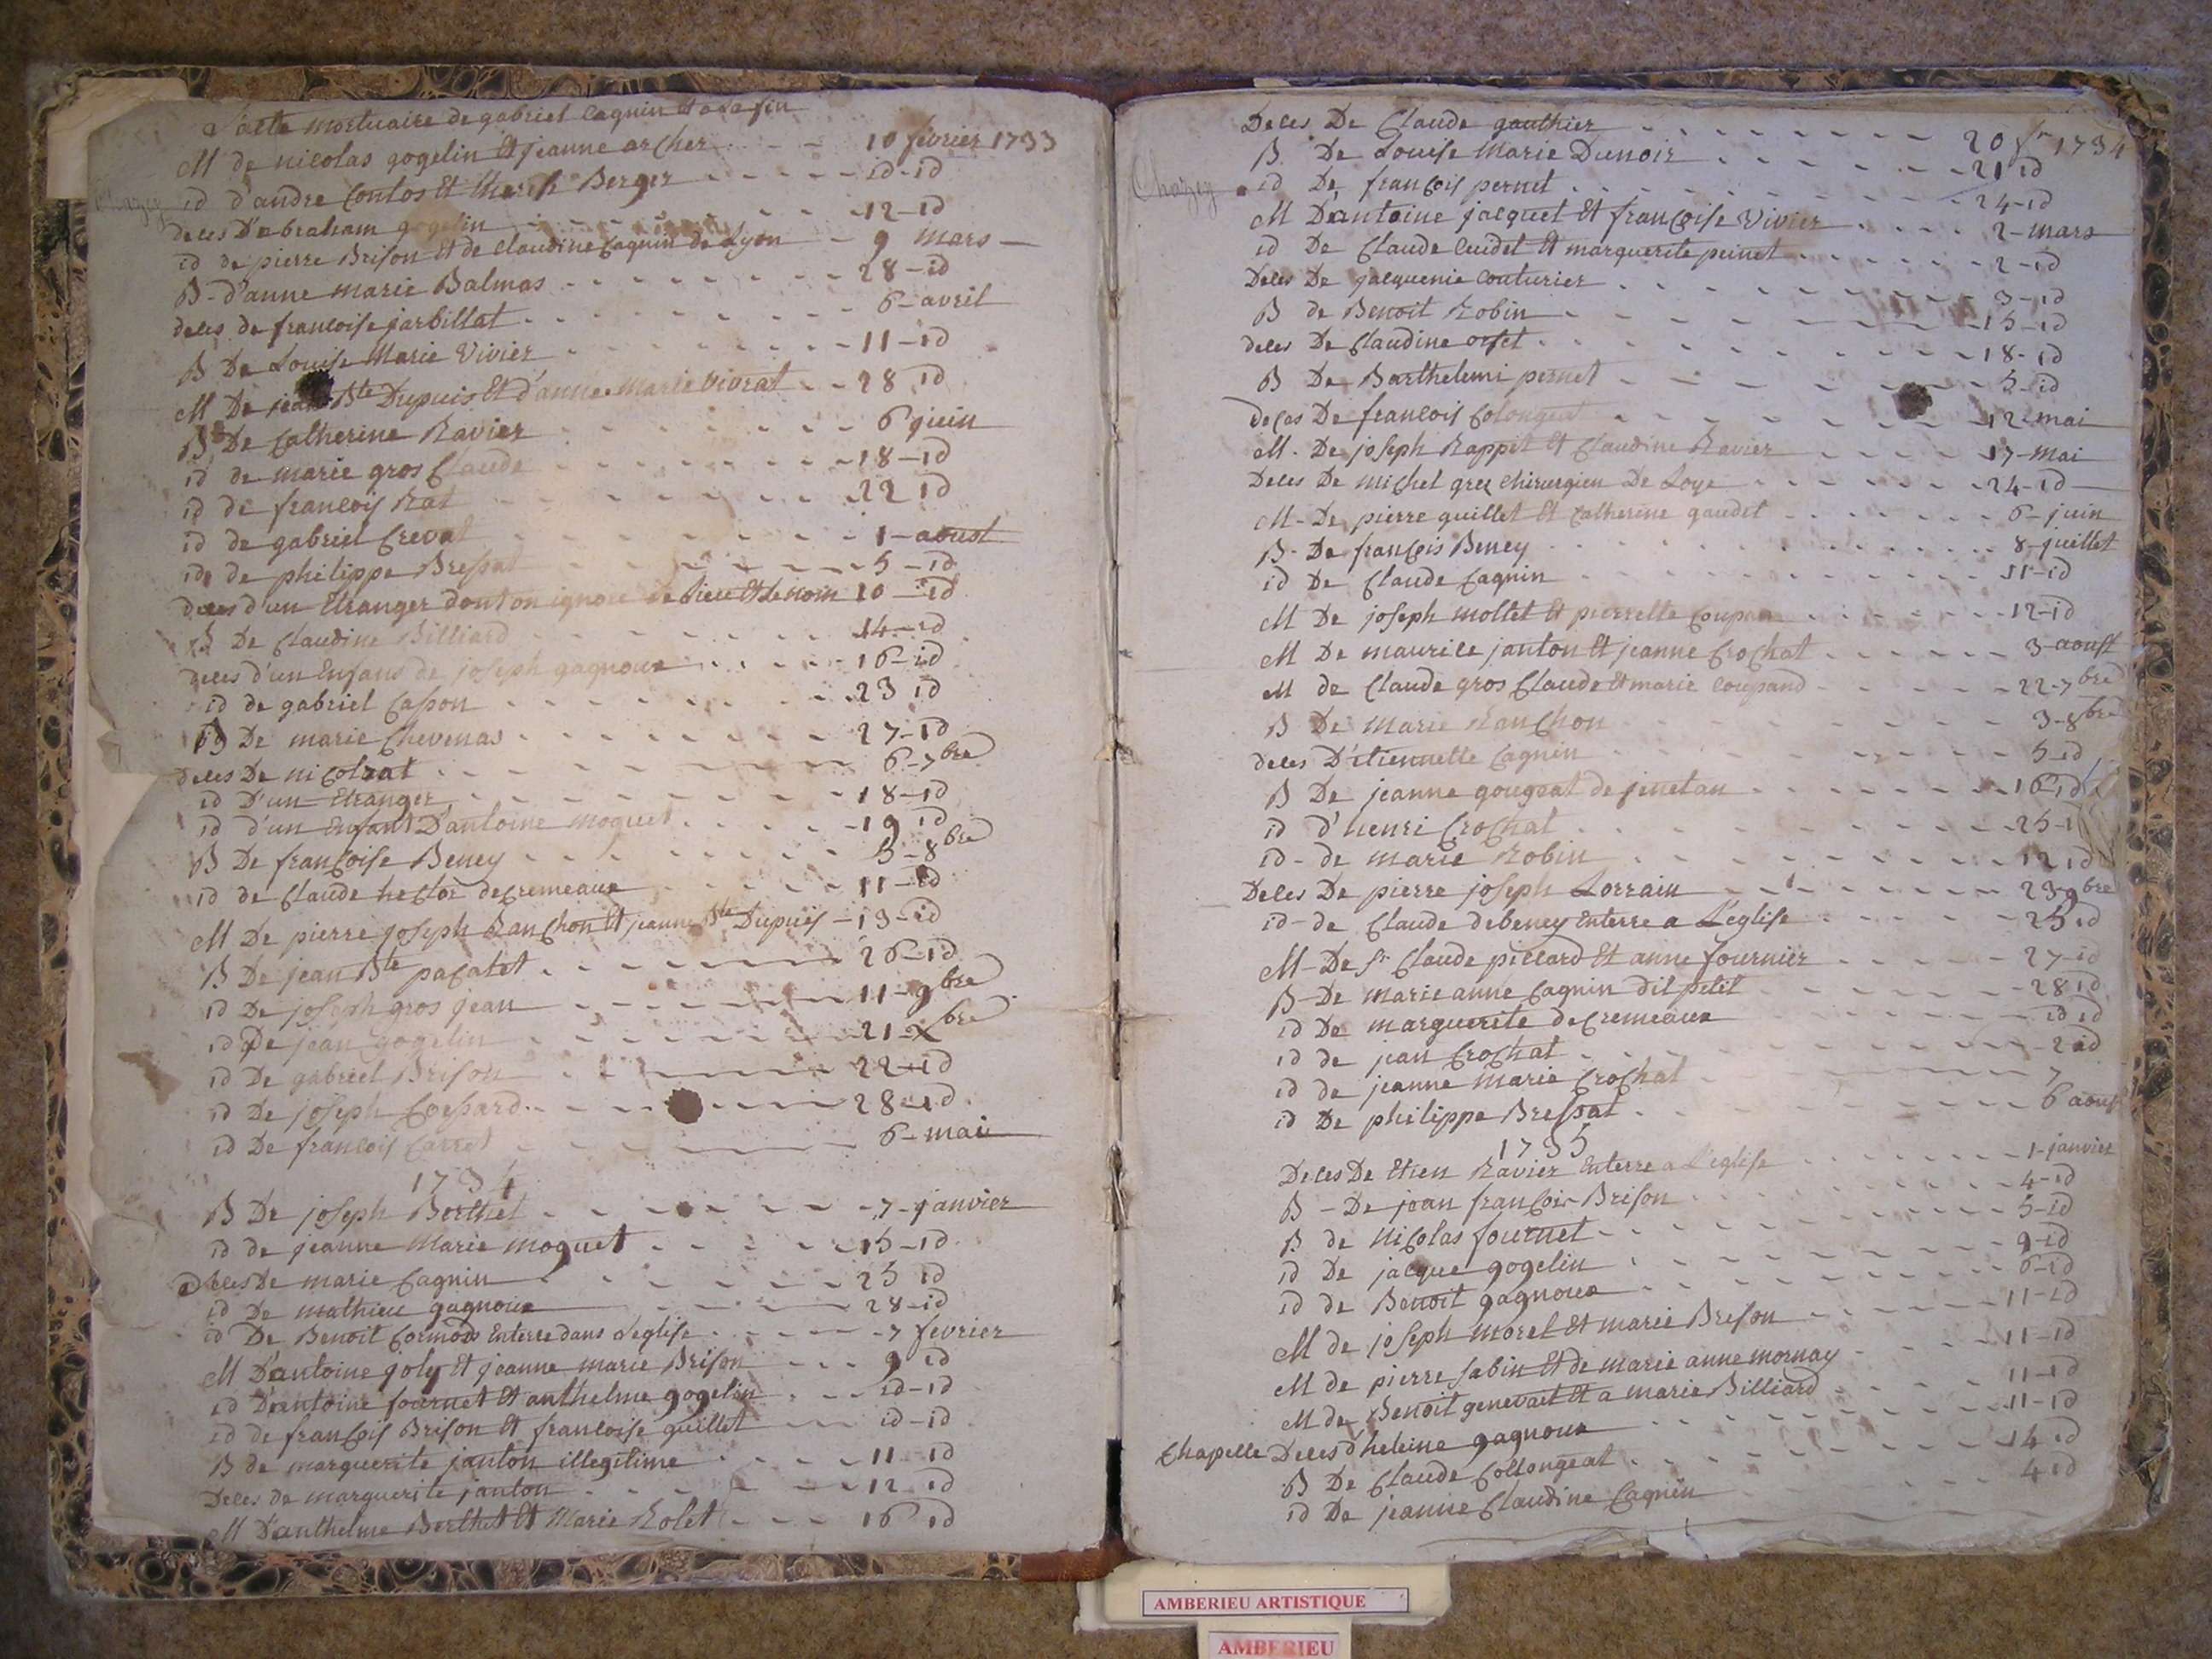 L'acte mortuaire de gabriel Cagnin Et a La fin
M de nicolas gogelin Et jeanne archer - - 10 fevrier 1733
Chazey id d'andre Contos Et Berger - - - - id-id
deces D'abraham gogelin - - - 12-id
id de pierre Brison Et de Claudine Cagnin de Lyon - 9 mars
B- d'anne marie Balmas - - - 28-id
deces de francoise jarbillat - - - 6-avril
B De Louise Marie Vivier - - - 11-id
M De jean Bte Dupuis Et d'anne Marie Vivrat - - 28 id
B De Catherine Ravier - - - 6 juin
id de marie gros Claude - - - 18-id
id de francois Rat - - - 22 id
id de gabriel Crevat - - - 1-aoust
id de philippe Bressat - - - 5-id
deces d'un Etranger dont on ignore Le Lieu Et Le nom 10-id
B De Claudine Billiard - - - 14-id
deces d'un Enfans de joseph gagnoux - - - 16-id
id de gabriel Casson - - - 23 id
B De marie Chevenas - - - 27-id
Deces De nicol rat - - - 6-7bre
id D'un Etranger - - - 18-id
id d'un Enfant D'antoine moquet - - - 19 id
B De françoise Beney - - - 5-8bre
id de Claude hector decremeaux - - - 11-id
M De pierre joseph Ranchon Et jeanne Bte Dupuis - 13-id
B De jean Bte pacatet - - - 26-id
id De joseph gros jean - - - 11-9bre
id De jean gogelin - - - 21-Xbre
id De gabriel Brison - - - 22-id
id De joseph Coessard - - - 28-id
id De francois Carret - - - 6-mai
1734
B De joseph Berthet - - - 7-janvier
id de jeanne Marie moquet - - - 15-id
Deces De marie Cagnin - - - 25 id
id De mathieu gagnoux - - - 28-id
id De Benoit Cormois Enterre dans Leglise - - - 7 fevrier
M D'antoine joly Et jeanne marie Brison - - - 9 id
id D'antoine fournet Et anthelme gogelin - - id-id
id de françois Brison Et francoise guillet - - id-id
B de marguerite janton illegitime - - - 11-id
Deces de marguerite janton - - - 12 id
M D'anthelme Berthet Et Marie Rolet - - - 16 id
Deces De Claude gauthier - - - 20 fr 1734
B. De Louise Marie Dunoir - - - 21 id
Chazey id De françois pernet - - - 24-id
M D'antoine jacquet Et françoise Vivier - - - 2-mars
id De Claude Cudet Et marguerite peinet - - - 2-id
Deces De jacquenie Couturier - - - 3-id
B de Benoit Robin - - - 15-id
deces De Claudine orset - - - 18-id
B De Barthelemi pernet - - - 5-id
deces De francois Colongeat - - - 12 mai
M. De joseph Rappet Et Claudine Ravier - - - 17-mai
Deces De michel grez chirurgien De Loye - - - 24-id
M- De pierre guillet Et Catherine gaudet - - - 6-juin
B- De françois Beney - - - 8-juillet
id De Claude Cagnin - - - 11-id
M De joseph mollet Et pierrette - - - 12-id
M De maurice janton Et jeanne Crochat - - - 3-aoust
M de Claude gros Claude Et marie Coupand - - - 22-7bre
B De Marie Ranchon - - - 3-8bre
deces D'etiennette Cagnin - - - 5-id
B De jeanne gougeat de jinetan - - - 16 id
id d'henri Crochat - - - 25-
id- de marie Robin - - - 12 id
Deces De pierre joseph Lorrain - - - 23-9bre
id- de Claude debeney Enterre a L'eglise - - - 25 id
M- De sr Claude pillard Et anne fournier - - - 27-id
B- De marie anne Cagnin dit petit - - - 28 id
id De marguerite decremeaux - - - id id
id de jean Crochat - - - 2 id
id de jeanne Marie Crochat - - - 7
id De philippe Bressat - - - 6 aoust
1735
Deces De Etien Ravier Enterre a L'eglise - - - 1-janvier
B - De jean françois Brison - - - 4-id
B de Nicolas fournet - - - 5-id
id De jacque gogelin - - - 9-id
id de Benoit gagnoux - - - 6-id
M de joseph Morel Et marie Brison - - - 11-id
M de pierre Sabin Et de marie anne mornay - - - 11-id
M de Benoit genevait Et a marie Billiard - - - 11-id
Chapelle Deces d'heleine gagnoux - - - 11-id
B De Claude Collongeat - - - 14 id
id De jeanne Claudine Cagnin - - - 4 id
AMBERIEU ARTISTIQUE
AMBERIEU